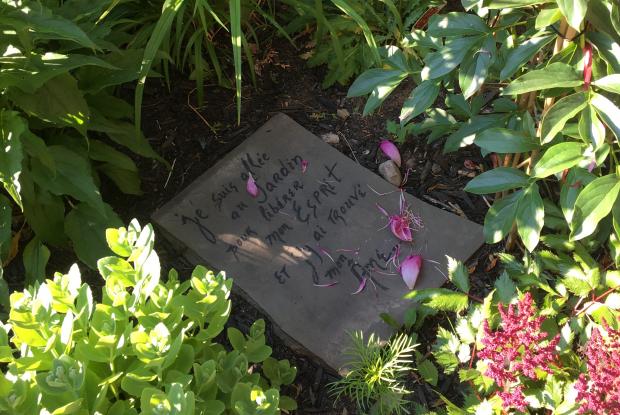 je suis allée
au Jardin
pour libérer
mon ESPRIT
et j'y ai TROUVÉ
mon Âme